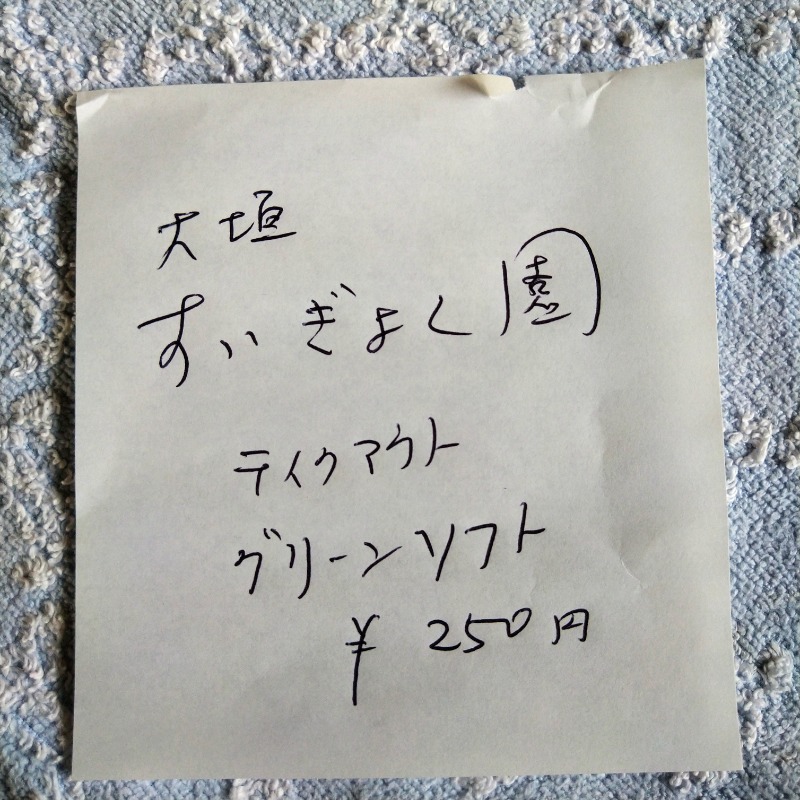 大垣
すいぎょく園
テイクアウト
グリーンソフト
¥ 250円